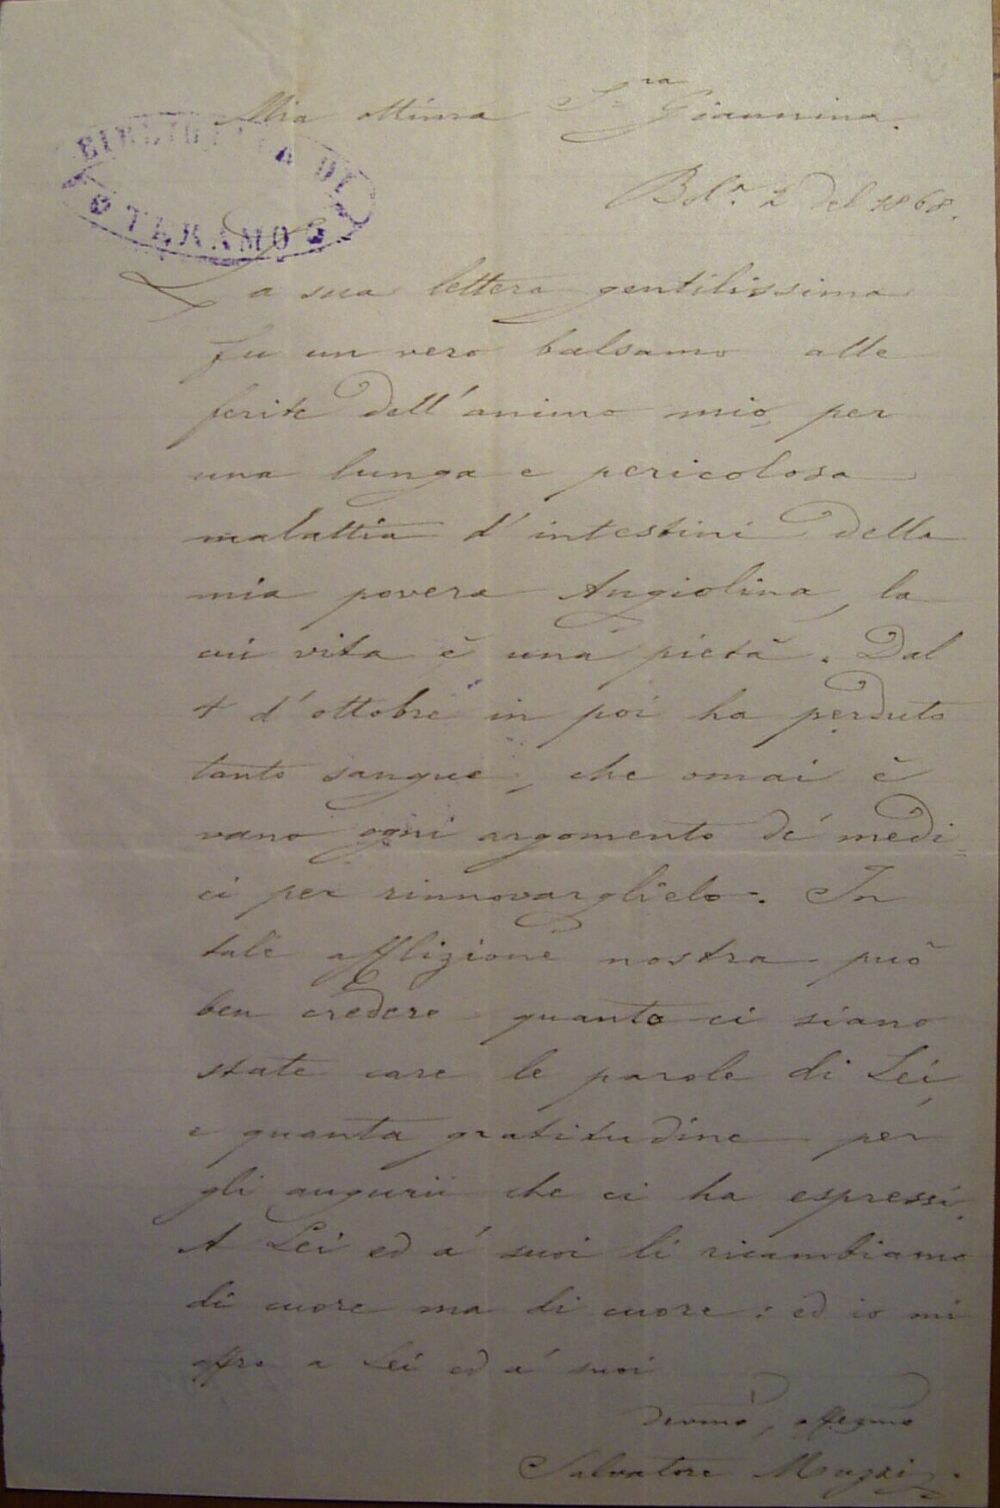 Mia ottima S.ra Giannina.
BIBLIOTECA DI
TERAMO
Bol.a 2 del 1868.
La sua lettera gentilissima
fu un vero balsamo alle
ferite dell'animo mio, per
una lunga e pericolosa
malattia d'intestini della
mia povera Angiolina, la
cui vita è una pietà. Dal
4 d'ottobre in poi ha perduto
tanto sangue, che omai è
vano ogni argomento de' medi-
ci per rinnovarglielo. In
tale afflizione nostra può
ben credere quanto ci siano
state care le parole di Lei,
e quanta gratitudine per
gli augurii che ci ha espressi.
A Lei ed a' suoi li ricambiamo
di cuore ma di cuore: ed io mi
offro a Lei ed a' suoi
devmo, affezmo
Salvatore Muzzi.